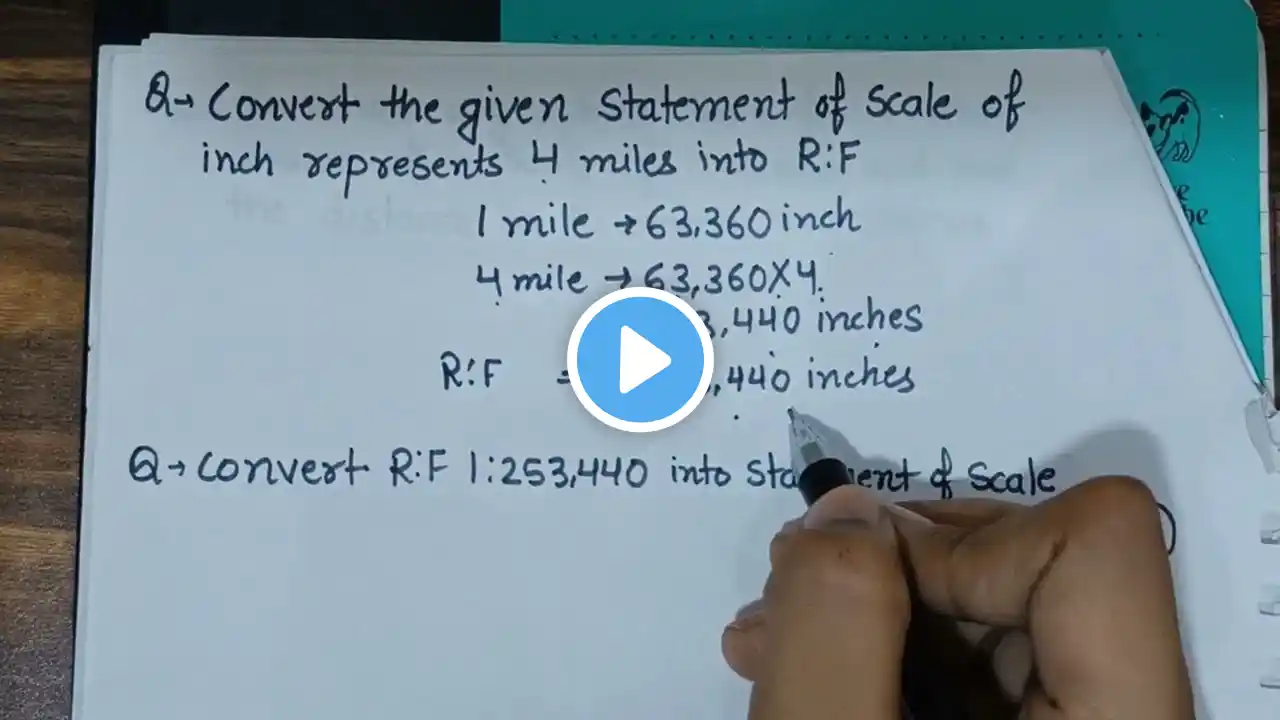 Q→ Convert the given Statement of Scale of
inch represents 4 miles into R:F
1 mile → 63,360 inch
4 mile → 63,360X4
3,440 inches
R:F = ,440 inches
Q→ Convert R:F 1:253,440 into Scale
of